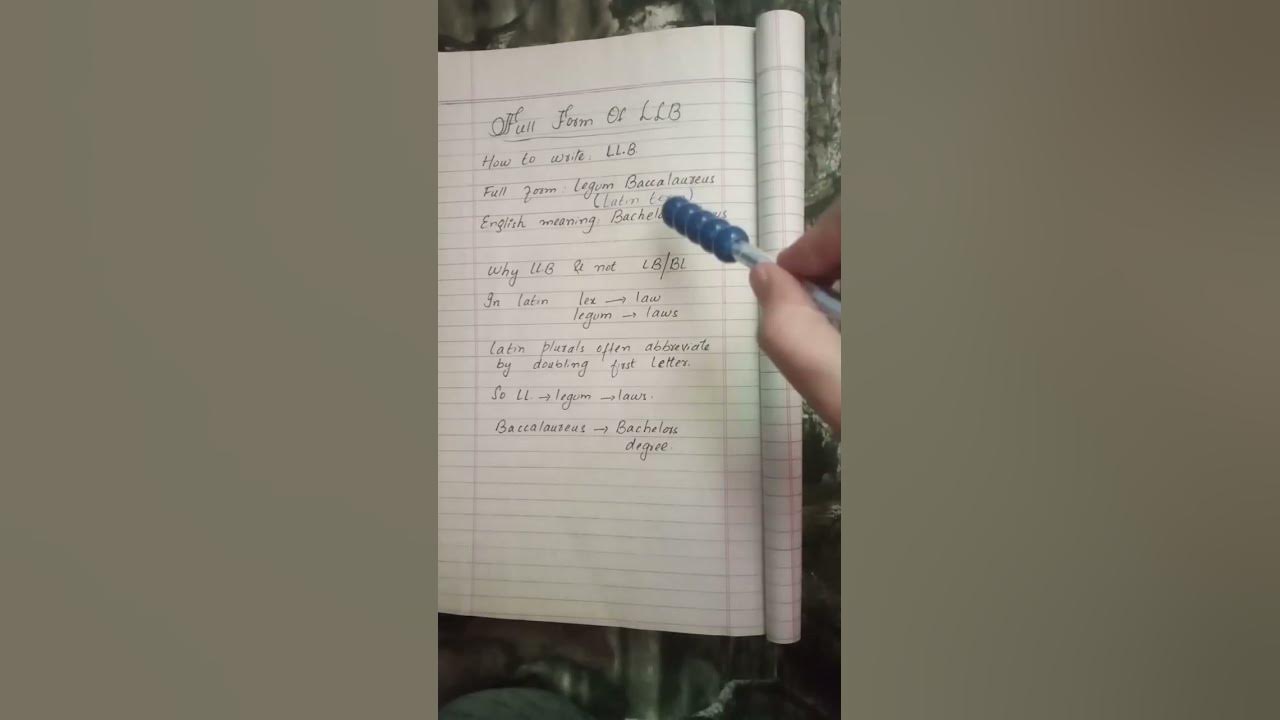 Full Form Of LLB
How to write: LL.B.
Full form: Legum Baccalaureus
(Latin
English meaning:
Why LLB & not LB/BL
In latin lex → law
legum → laws
Latin plurals often abbreviate
by doubling first letter.
So LL. → legum → laws.
Baccalaureus → Bachelors
degree.